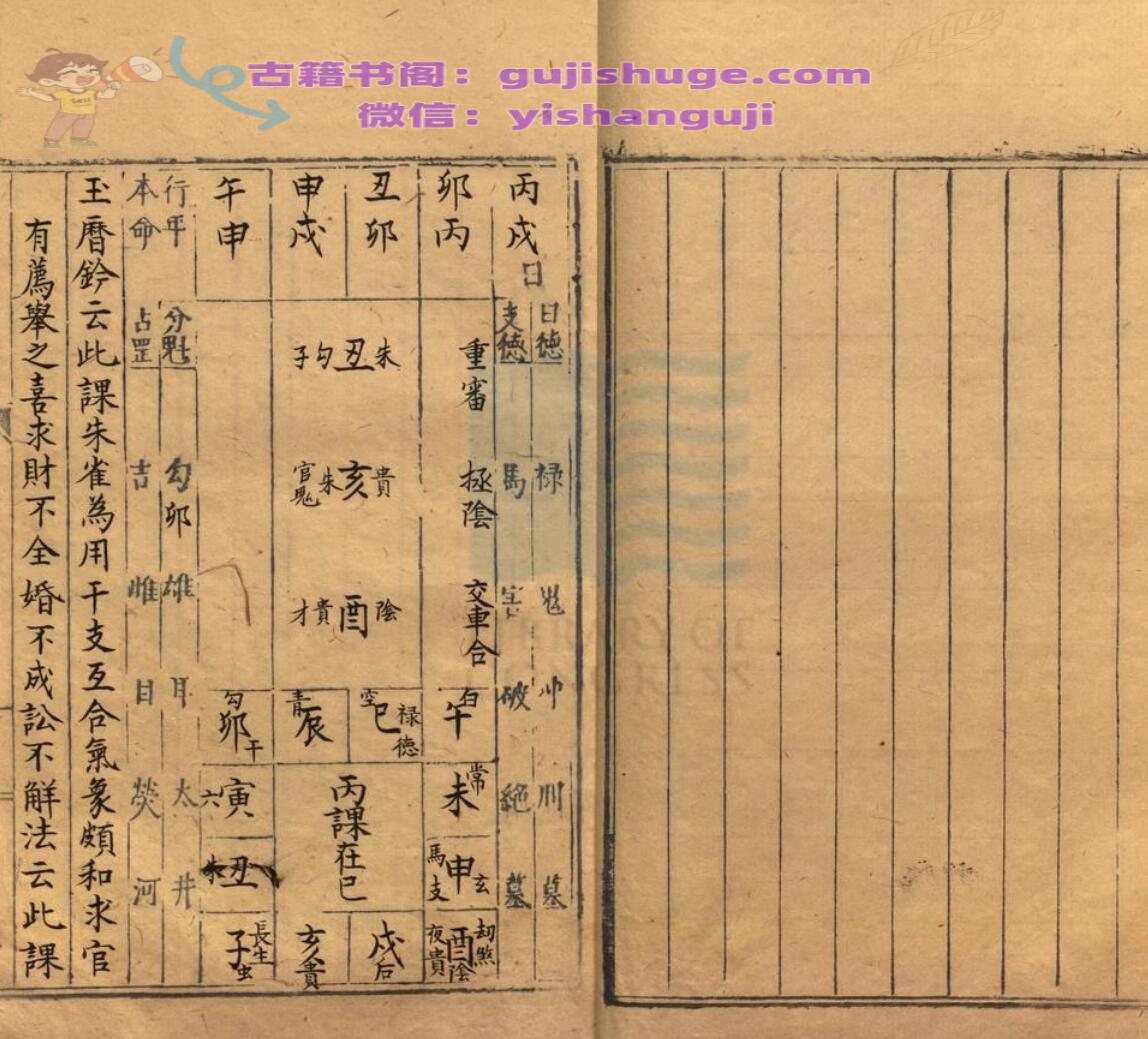 古籍书阁：gujishuge.com
微信：yishanguji
丙戌日
日德 禄 鬼 冲 刑 墓
支德 馬 害 破 絕 墓
卯丙
丑卯
申戌
午申
重審 極陰 交車合
朱丑勾子
貴亥朱官鬼
陰酉貴才
白午
空巳禄德
青辰
勾卯干
常未
六寅
丙課在巳
馬支申玄
朱丑
劫煞酉陰夜貴
戌后
亥貴
長生子
行年 分野 勾卯 雄 耳 太 井
本命 占罡 吉 雌 目 熒 河
玉曆鈐云此課朱雀為用干支互合氣象頗和求官
有薦舉之喜求財不全婚不成訟不解法云此課